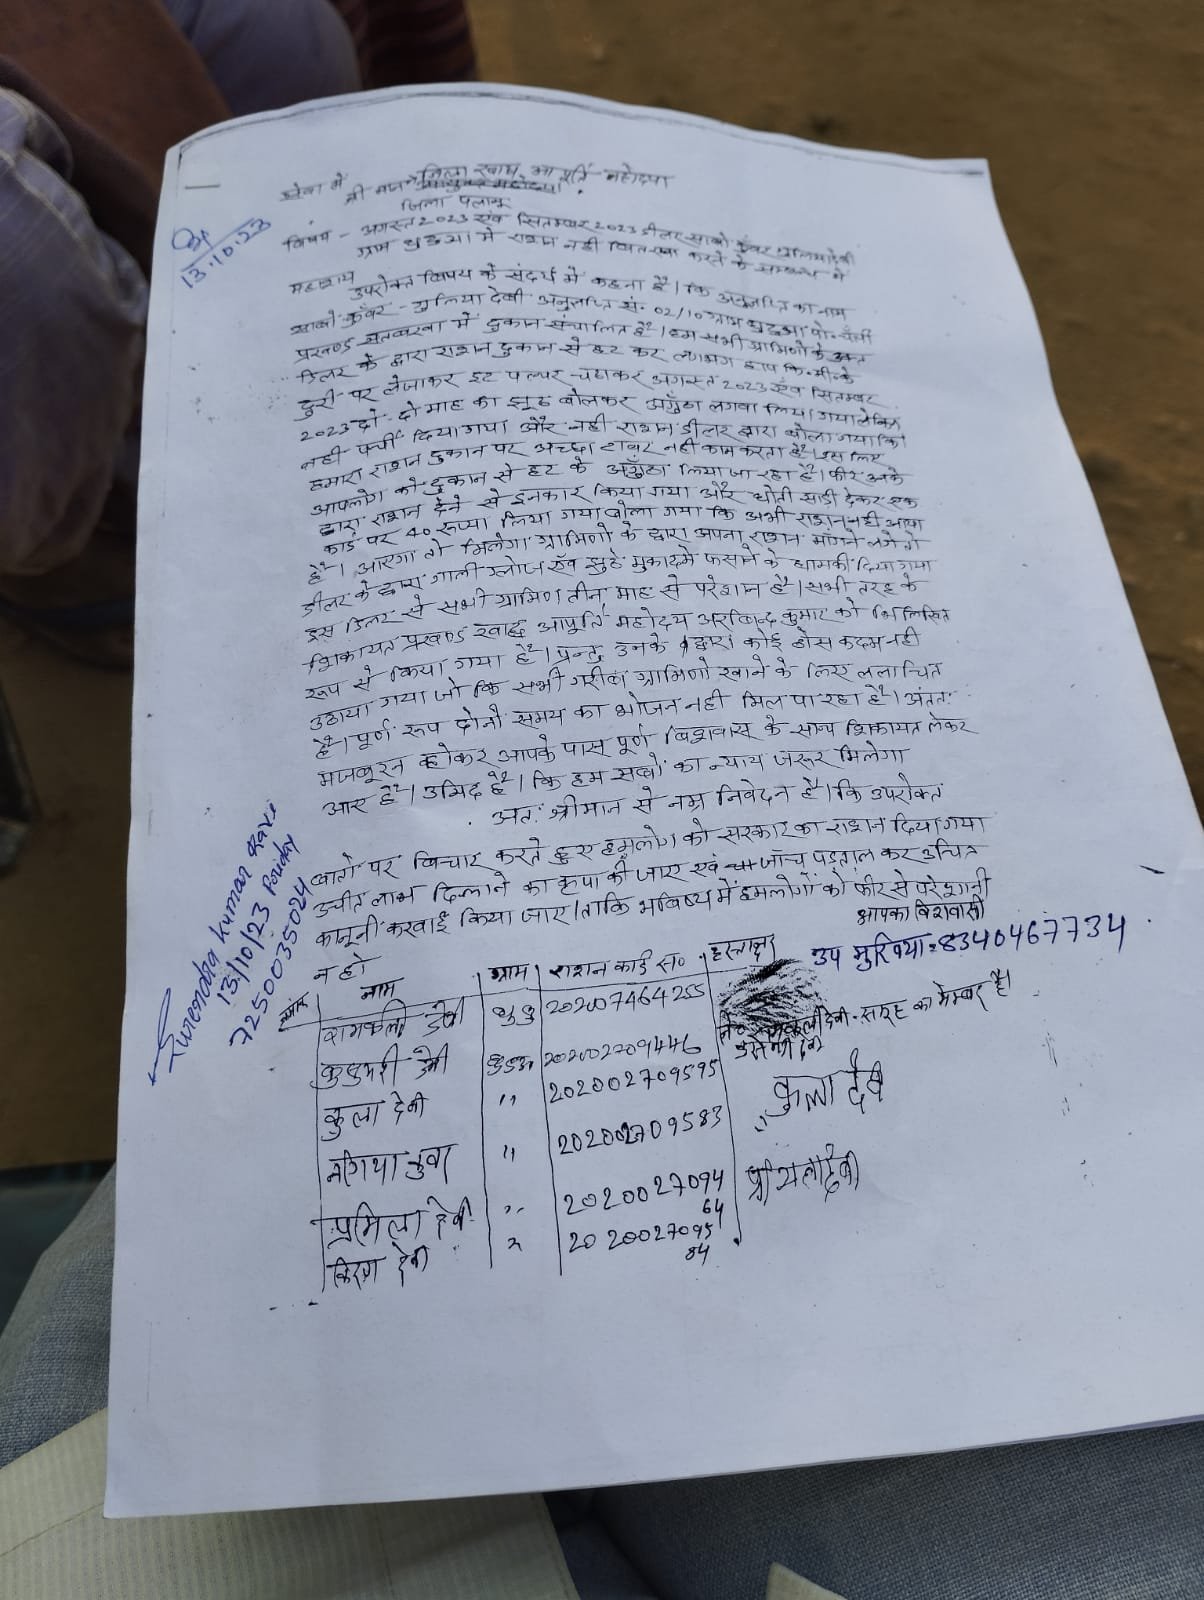 सेवा में
श्री मान जिला खाद्य आपूर्ति महोदया
जिला पलामू
13.10.23
विषय - अगस्त 2023 एंव सितम्बर 2023 डीलर साबो कुँवर गुलिया देवी
ग्राम धुडुआ में राशन नही वितरण करने के सम्बन्ध में
महाशय
उपरोक्त विषय के संदर्भ में कहना है। कि अनुज्ञप्ति का नाम
साबो कुँवर - गुलिया देवी अनुज्ञप्ति सं. 02/10 ग्राम धुडुआ पो.
प्रखण्ड सतबरवा में दुकान संचालित है। हम सभी ग्रामिणों के उक्त
डिलर के द्वारा राशन दुकान से हट कर लगभग ढाए कि.मी. के
दुरी पर लेजाकर इट पत्थर चढाकर अगस्त 2023 एंव सितम्बर
2023 दो-दो माह का झूठ बोलकर अगुँठा लगवा लिया गया लेकिन
नही पर्ची दिया गया और नही राशन डीलर द्वारा बोला गया कि
हमारा राशन दुकान पर अच्छा टावर नही काम करता है। इस लिए
आपलोग को दुकान से हट के अगुँठा लिया जा रहा है। फीर उनके
द्वारा राशन देने से इनकार किया गया और धोती साड़ी देकर एक
कार्ड पर 40 रूप्या लिया गया बोला गया कि अभी राशन नही आया
है। आएगा तो मिलेगा ग्रामिणों के द्वारा अपना राशन माँगने लगे तो
डीलर के द्वारा गाली ग्लोज एंव झुठे मुकादमे फसाने के धामकी दिया गया
इस डिलर से सभी ग्रामिण तीन माह से परेशान है। सभी तरह के
शिकायत प्रखण्ड खाद्ध आपूर्ति महोदय अरबिन्द कुमार को लिखित
रूप से किया गया है। प्रन्तु उनके द्वारा कोई ठोस कदम नही
उठाया गया जो कि सभी गरीब ग्रामिणो खाने के लिए ललाचित
है। पूर्ण रूप दोनो समय का भोजन नही मिल पा रहा है। अंततः
मजबूरन होकर आपके पास पूर्ण बिशवास के साथ शिकायत लेकर
आए है। उमिद है। कि हम सबो का न्याय जरूर मिलेगा
अतः श्रीमान से नम्र निवेदन है। कि उपरोक्त
बातो पर विचार करते हुए हमलोग को सरकार का राशन दिया गया
उचीत लाभ दिलाने का कृपा की जाए एवं जाँच पड़ताल कर उचित
कानूनी करवाई किया जाए। ताकि भबिष्य में हमलोगों को फीर से परेशानी
न हो
आपका विशवासी
उप मुखिया - 8340467734
Surendra kumar Ravi
13/10/23 Friday
7250035024
नाम ग्राम राशन कार्ड सं० हस्ताक्षर
रामकली देवी धुडु 202007464255
देवी डुआ 202002709446
समूह का मेम्बर है।
कुला देवी " 202002709595 कुला देवी
" 202002709583
प्रमिला देवी " 202002709464
किरण देवी " 202002709584